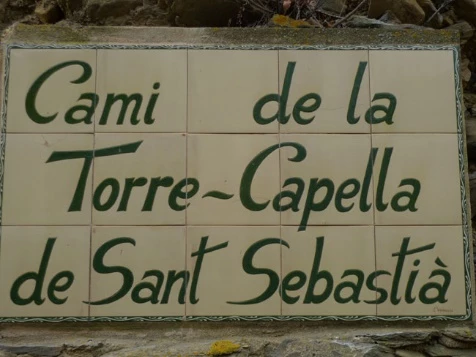 Cami de la
Torre~Capella
de Sant Sebastià